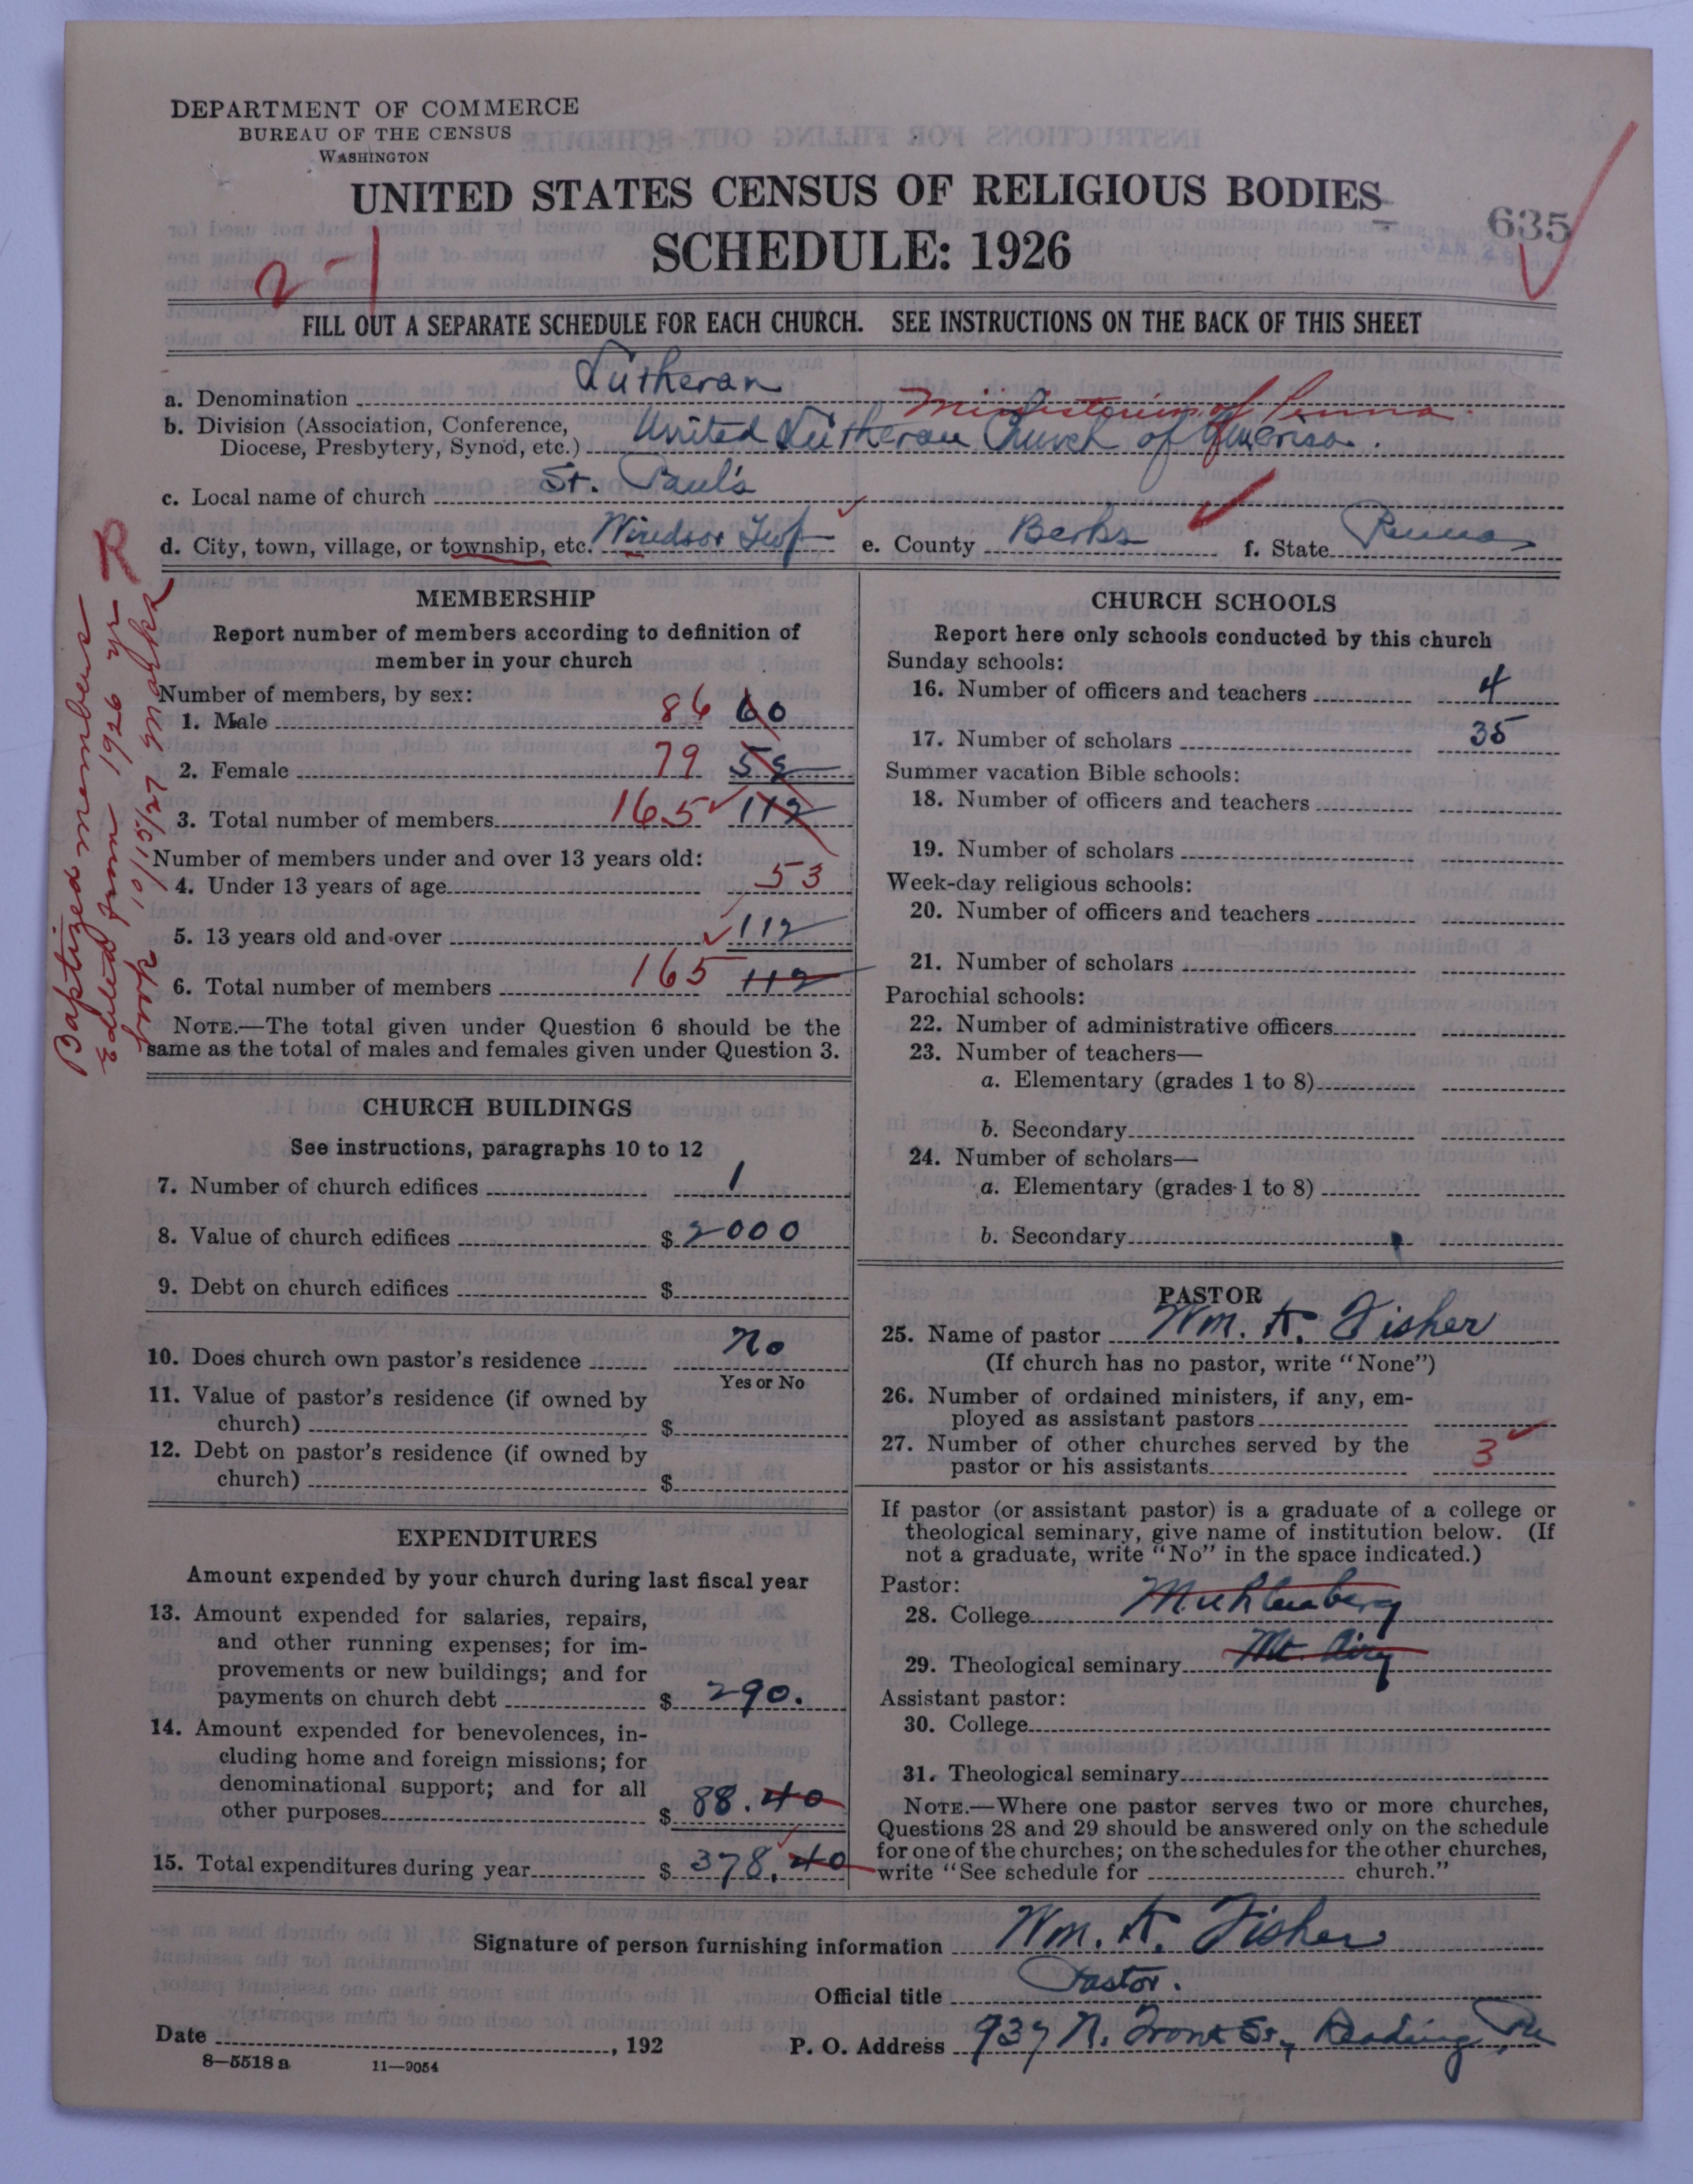 DEPARTMENT OF COMMERCE
BUREAU OF THE CENSUS
WASHINGTON
UNITED STATES CENSUS OF RELIGIOUS BODIES
635
SCHEDULE: 1926
2-1
FILL OUT A SEPARATE SCHEDULE FOR EACH CHURCH. SEE INSTRUCTIONS ON THE BACK OF THIS SHEET
a. Denomination Lutheran
Ministerium of Penna.
b. Division (Association, Conference, Diocese, Presbytery, Synod, etc.) United Lutheran Church of America.
c. Local name of church St. Paul's
d. City, town, village, or township, etc. Windsor Twp e. County Berks f. State Penna
Baptized members
Edited from 1926 yr
book 10/15/27 Marks
R
MEMBERSHIP
Report number of members according to definition of
member in your church
Number of members, by sex:
1. Male 86 60
2. Female 79 52
3. Total number of members 165 112
Number of members under and over 13 years old:
4. Under 13 years of age 53
5. 13 years old and over 112
6. Total number of members 165 112
NOTE.—The total given under Question 6 should be the
same as the total of males and females given under Question 3.
CHURCH BUILDINGS
See instructions, paragraphs 10 to 12
7. Number of church edifices 1
8. Value of church edifices $ 2000
9. Debt on church edifices $
10. Does church own pastor's residence No
Yes or No
11. Value of pastor's residence (if owned by
church) $
12. Debt on pastor's residence (if owned by
church) $
EXPENDITURES
Amount expended by your church during last fiscal year
13. Amount expended for salaries, repairs,
and other running expenses; for im-
provements or new buildings; and for
payments on church debt $ 290.
14. Amount expended for benevolences, in-
cluding home and foreign missions; for
denominational support; and for all
other purposes $ 88.40
15. Total expenditures during year $ 378.40
CHURCH SCHOOLS
Report here only schools conducted by this church
Sunday schools:
16. Number of officers and teachers 4
17. Number of scholars 35
Summer vacation Bible schools:
18. Number of officers and teachers
19. Number of scholars
Week-day religious schools:
20. Number of officers and teachers
21. Number of scholars
Parochial schools:
22. Number of administrative officers
23. Number of teachers—
a. Elementary (grades 1 to 8)
b. Secondary
24. Number of scholars—
a. Elementary (grades 1 to 8)
b. Secondary
PASTOR
25. Name of pastor Wm. K. Fisher
(If church has no pastor, write "None")
26. Number of ordained ministers, if any, em-
ployed as assistant pastors
27. Number of other churches served by the
pastor or his assistants 3
If pastor (or assistant pastor) is a graduate of a college or
theological seminary, give name of institution below. (If
not a graduate, write "No" in the space indicated.)
Pastor:
28. College Muhlenberg
29. Theological seminary Mt. Airy
Assistant pastor:
30. College
31. Theological seminary
NOTE.—Where one pastor serves two or more churches,
Questions 28 and 29 should be answered only on the schedule
for one of the churches; on the schedules for the other churches,
write "See schedule for church."
Signature of person furnishing information Wm. K. Fisher
Official title Pastor.
Date , 192 P. O. Address 937 N. Front St., Reading, Pa
8—5518 a 11—9054